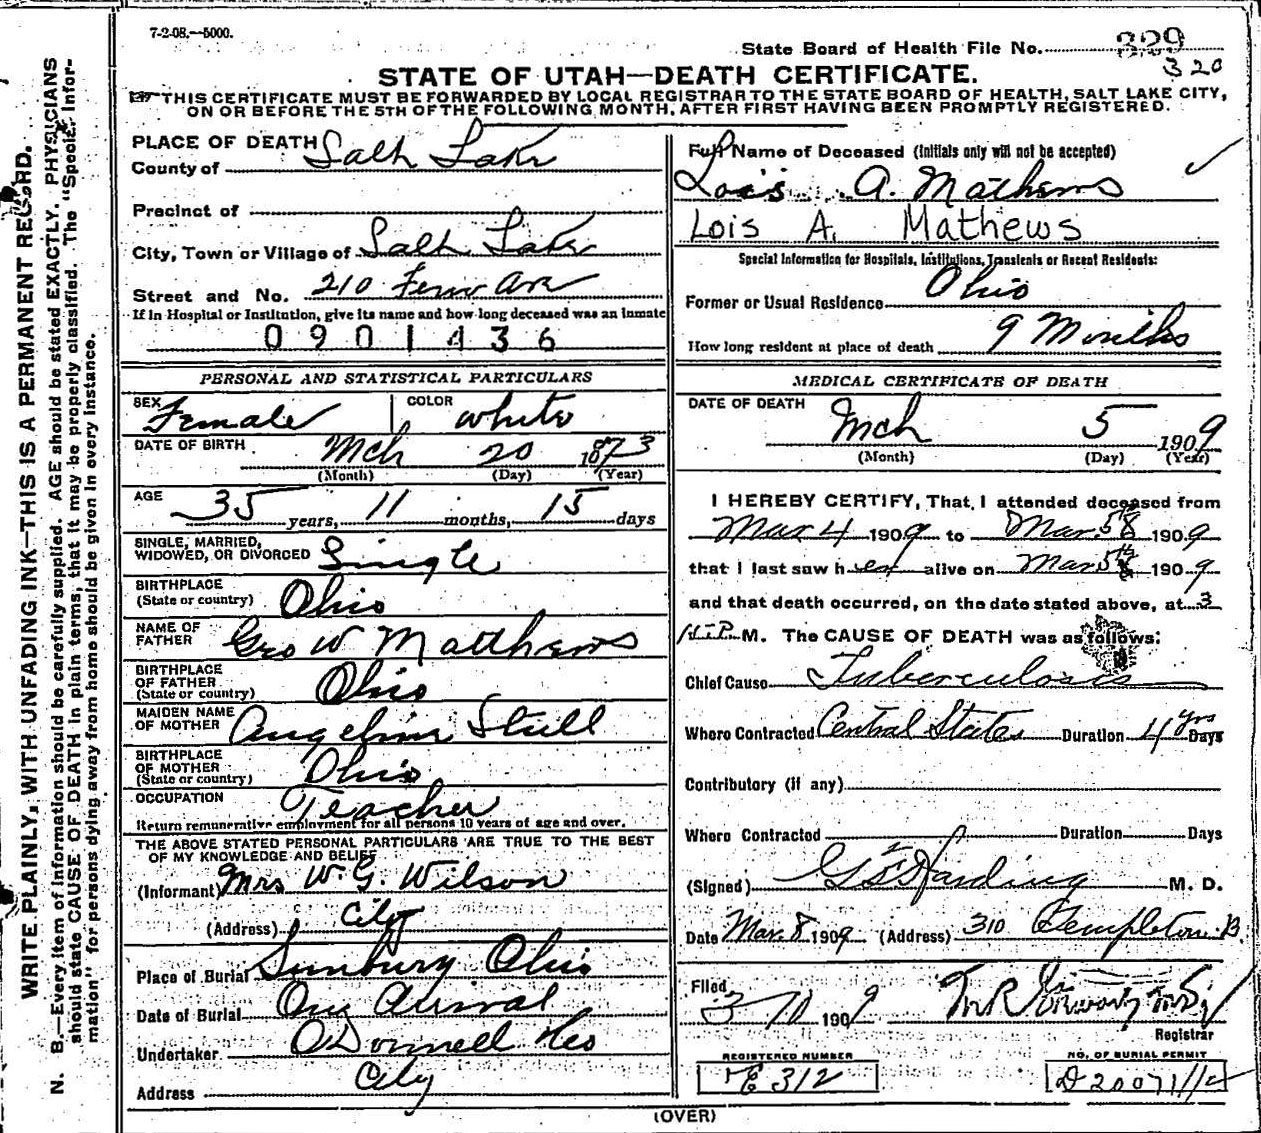 7-2-08.—5000.
State Board of Health File No. 329
320
STATE OF UTAH—DEATH CERTIFICATE.
THIS CERTIFICATE MUST BE FORWARDED BY LOCAL REGISTRAR TO THE STATE BOARD OF HEALTH, SALT LAKE CITY,
ON OR BEFORE THE 5TH OF THE FOLLOWING MONTH, AFTER FIRST HAVING BEEN PROMPTLY REGISTERED.
WRITE PLAINLY, WITH UNFADING INK—THIS IS A PERMANENT RECORD.
N. B.—Every item of information should be carefully supplied. AGE should be stated EXACTLY. PHYSICIANS
should state CAUSE OF DEATH in plain terms, that it may be properly classified. The "Special Infor-
mation" for persons dying away from home should be given in every instance.
PLACE OF DEATH
County of Salt Lake
Precinct of
City, Town or Village of Salt Lake
Street and No. 210 Ave
If in Hospital or Institution, give its name and how long deceased was an inmate
0901436
PERSONAL AND STATISTICAL PARTICULARS
SEX Female COLOR white
DATE OF BIRTH Mch 20 1873
(Month) (Day) (Year)
AGE 35 years, 11 months, 15 days
SINGLE, MARRIED,
WIDOWED, OR DIVORCED Single
BIRTHPLACE
(State or country) Ohio
NAME OF
FATHER Geo W Matthews
BIRTHPLACE
OF FATHER
(State or country) Ohio
MAIDEN NAME
OF MOTHER Angeline Stull
BIRTHPLACE
OF MOTHER
(State or country) Ohio
OCCUPATION Teacher
Return remunerative employment for all persons 10 years of age and over.
THE ABOVE STATED PERSONAL PARTICULARS ARE TRUE TO THE BEST
OF MY KNOWLEDGE AND BELIEF
(Informant) Mrs W. G. Wilson
(Address) City
Place of Burial Sunbury Ohio
Date of Burial On Arrival
Undertaker O'Donnell &Co
Address City
Full Name of Deceased (Initials only will not be accepted)
Lois A. Mathews
Lois A. Mathews
Special Information for Hospitals, Institutions, Transients or Recent Residents:
Former or Usual Residence Ohio
How long resident at place of death 9 Months
MEDICAL CERTIFICATE OF DEATH
DATE OF DEATH Mch 5 1909
(Month) (Day) (Year)
I HEREBY CERTIFY, That I attended deceased from
Mar 4 1909 to Mar. 5 1909
that I last saw her alive on Mar 5th 1909
and that death occurred, on the date stated above, at 3
P. M. The CAUSE OF DEATH was as follows:
Chief Cause Tuberculosis
Where Contracted Central States Duration 4 yrs Days
Contributory (if any)
Where Contracted Duration Days
(Signed) Harding M. D.
Date Mar. 8 1909 (Address) 310 Templeton B.
Filed
3-10 1909
Registrar
REGISTERED NUMBER
E 312
NO. OF BURIAL PERMIT
D 20071
(OVER)